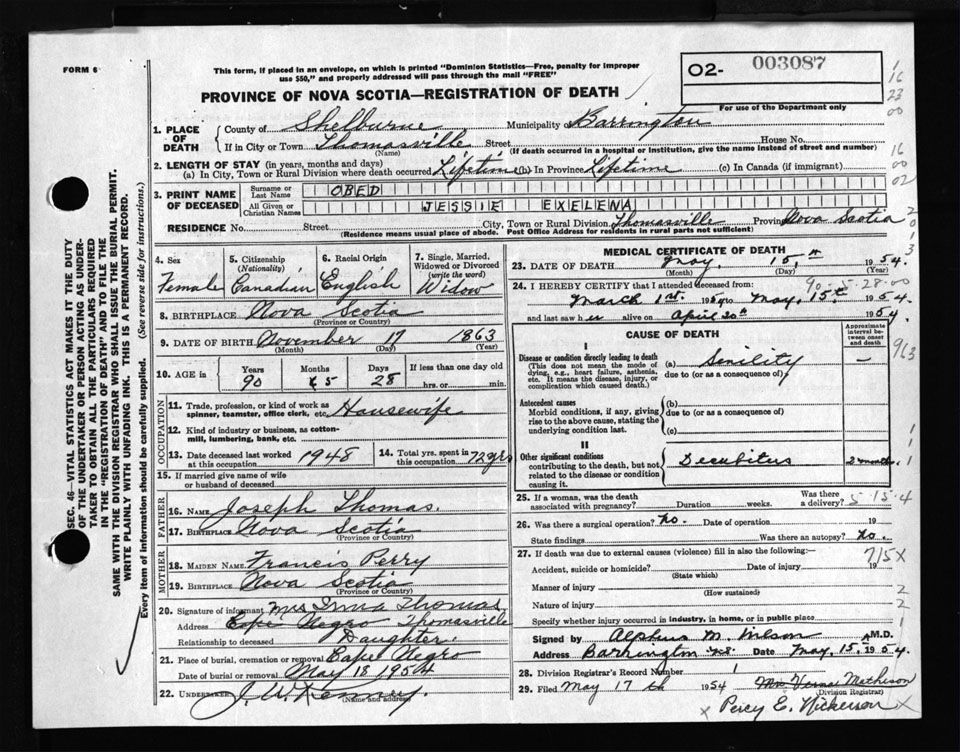 FORM 6
This form, if placed in an envelope, on which is printed "Dominion Statistics—Free, penalty for improper
use $50," and properly addressed will pass through the mail "FREE"
O2- 003087
PROVINCE OF NOVA SCOTIA—REGISTRATION OF DEATH
For use of the Department only
1. PLACE OF DEATH
County of Shelburne Municipality of Barrington
If in City or Town Thomasville Street House No.
(Name) (If death occurred in a hospital or institution, give the name instead of street and number)
2. LENGTH OF STAY (in years, months and days)
(a) In City, Town or Rural Division where death occurred Lifetime (b) In Province Lifetime (c) In Canada (if immigrant)
3. PRINT NAME OF DECEASED
Surname or Last Name OBED
All Given or Christian Names JESSIE EXELENA
RESIDENCE No. Street City, Town or Rural Division Thomasville Province Nova Scotia
(Residence means usual place of abode. Post Office Address for residents in rural parts not sufficient)
4. Sex Female
5. Citizenship (Nationality) Canadian
6. Racial Origin English
7. Single, Married, Widowed or Divorced (write the word) Widow
8. BIRTHPLACE Nova Scotia
(Province or Country)
9. DATE OF BIRTH November 17 1863
(Month) (Day) (Year)
10. AGE in Years Months Days If less than one day old
90 5 28 hrs. or min.
OCCUPATION
11. Trade, profession, or kind of work as spinner, teamster, office clerk, etc. Housewife
12. Kind of industry or business, as cotton-mill, lumbering, bank, etc.
13. Date deceased last worked at this occupation 1948
14. Total yrs. spent in this occupation 72 yrs
15. If married give name of wife or husband of deceased
FATHER
16. NAME Joseph Thomas.
17. BIRTHPLACE Nova Scotia
(Province or Country)
MOTHER
18. MAIDEN NAME Francis Perry
19. BIRTHPLACE Nova Scotia
(Province or Country)
20. Signature of informant Mrs Irma Thomas
Address Cape Negro Thomasville
Relationship to deceased Daughter.
21. Place of burial, cremation or removal Cape Negro
Date of burial or removal May 18 1954
22. UNDERTAKER J. W. Kenney.
(Name and address)
MEDICAL CERTIFICATE OF DEATH
23. DATE OF DEATH May, 15th 1954.
(Month) (Day) (Year)
90-5-28-00
24. I HEREBY CERTIFY that I attended deceased from:
March 1st. 1954 to May, 15th 1954
and last saw her alive on April 30th 1954.
CAUSE OF DEATH
Approximate interval between onset and death
I
Disease or condition directly leading to death
(This does not mean the mode of dying, e.g., heart failure, asthenia, etc. It means the disease, injury, or complication which caused death.)
(a) Senility —
due to (or as a consequence of)
Antecedent causes
Morbid conditions, if any, giving rise to the above cause, stating the underlying condition last.
(b)
due to (or as a consequence of)
(c)
II
Other significant conditions
contributing to the death, but not related to the disease or condition causing it.
Decubitus 2 months.
25. If a woman, was the death associated with pregnancy? Duration weeks. Was there a delivery?
5-15-4
26. Was there a surgical operation? No. Date of operation 19
State findings Was there an autopsy? No.
27. If death was due to external causes (violence) fill in also the following:—
715X
Accident, suicide or homicide? Date of injury 19
(State which)
Manner of injury
(How sustained)
Nature of injury
Specify whether injury occurred in industry, in home, or in public place
Signed by Alphus M. Wilson M.D.
Address Barrington NS Date May, 15. 1954.
28. Division Registrar's Record Number 1
29. Filed May 17th 1954 Mrs Vernal Matheson
(Division Registrar)
x Percy E. Nickerson x
SEC. 46—VITAL STATISTICS ACT MAKES IT THE DUTY
OF THE UNDERTAKER OR PERSON ACTING AS UNDER-
TAKER TO OBTAIN ALL THE PARTICULARS REQUIRED
IN THE "REGISTRATION OF DEATH" AND TO FILE THE
SAME WITH THE DIVISION REGISTRAR WHO SHALL ISSUE THE BURIAL PERMIT.
WRITE PLAINLY WITH UNFADING INK. THIS IS A PERMANENT RECORD.
Every item of information should be carefully supplied. (See reverse side for instructions.)
1
16
23
00
16
00
02
2
0
1
3
963
1
1
1
2
2
1